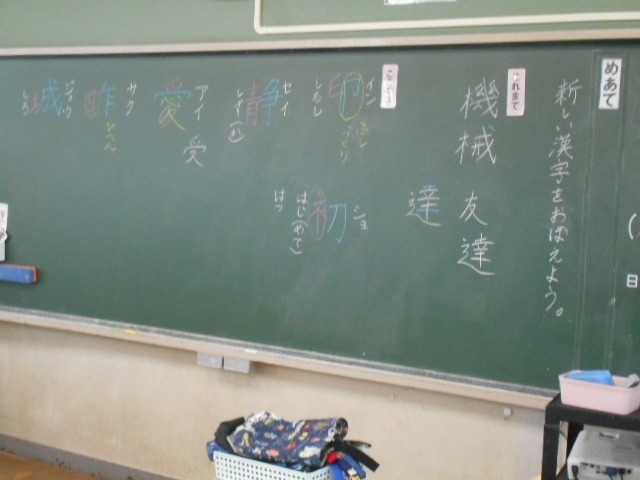 めあて
新しい漢字をおぼえよう。
これまで
機械
友達
達
イン
印
しるし
ショ
初
はじ(めて)
はつ
セイ
静
しず(か)
アイ
愛
受
サク
昨
ジョウ
城
しろ
日